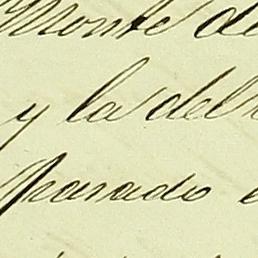 Monte de
y la del
parado